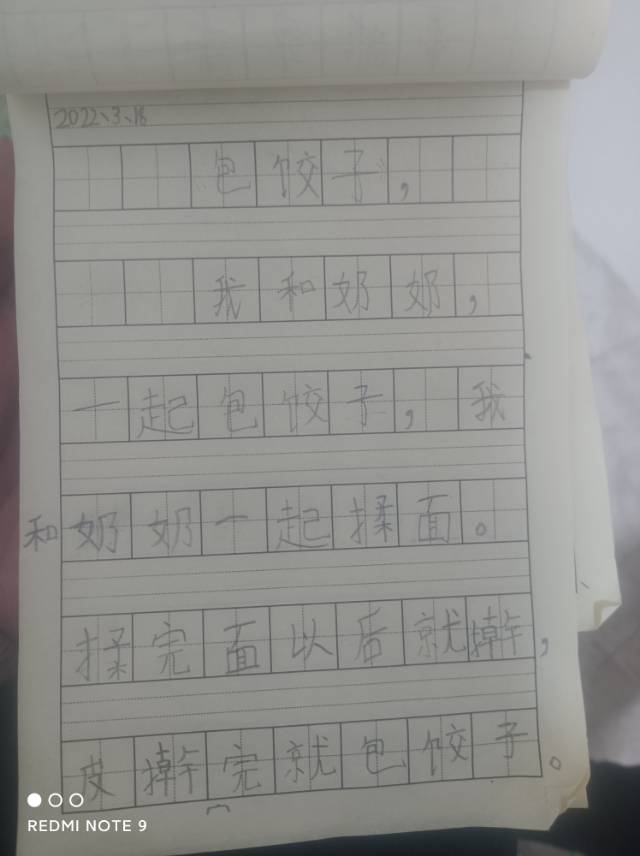 2022、3、16
包饺子,
我和奶奶,
一起包饺子,我
和奶奶一起揉面。
揉完面以后就擀,
皮擀完就包饺子。
REDMI NOTE 9